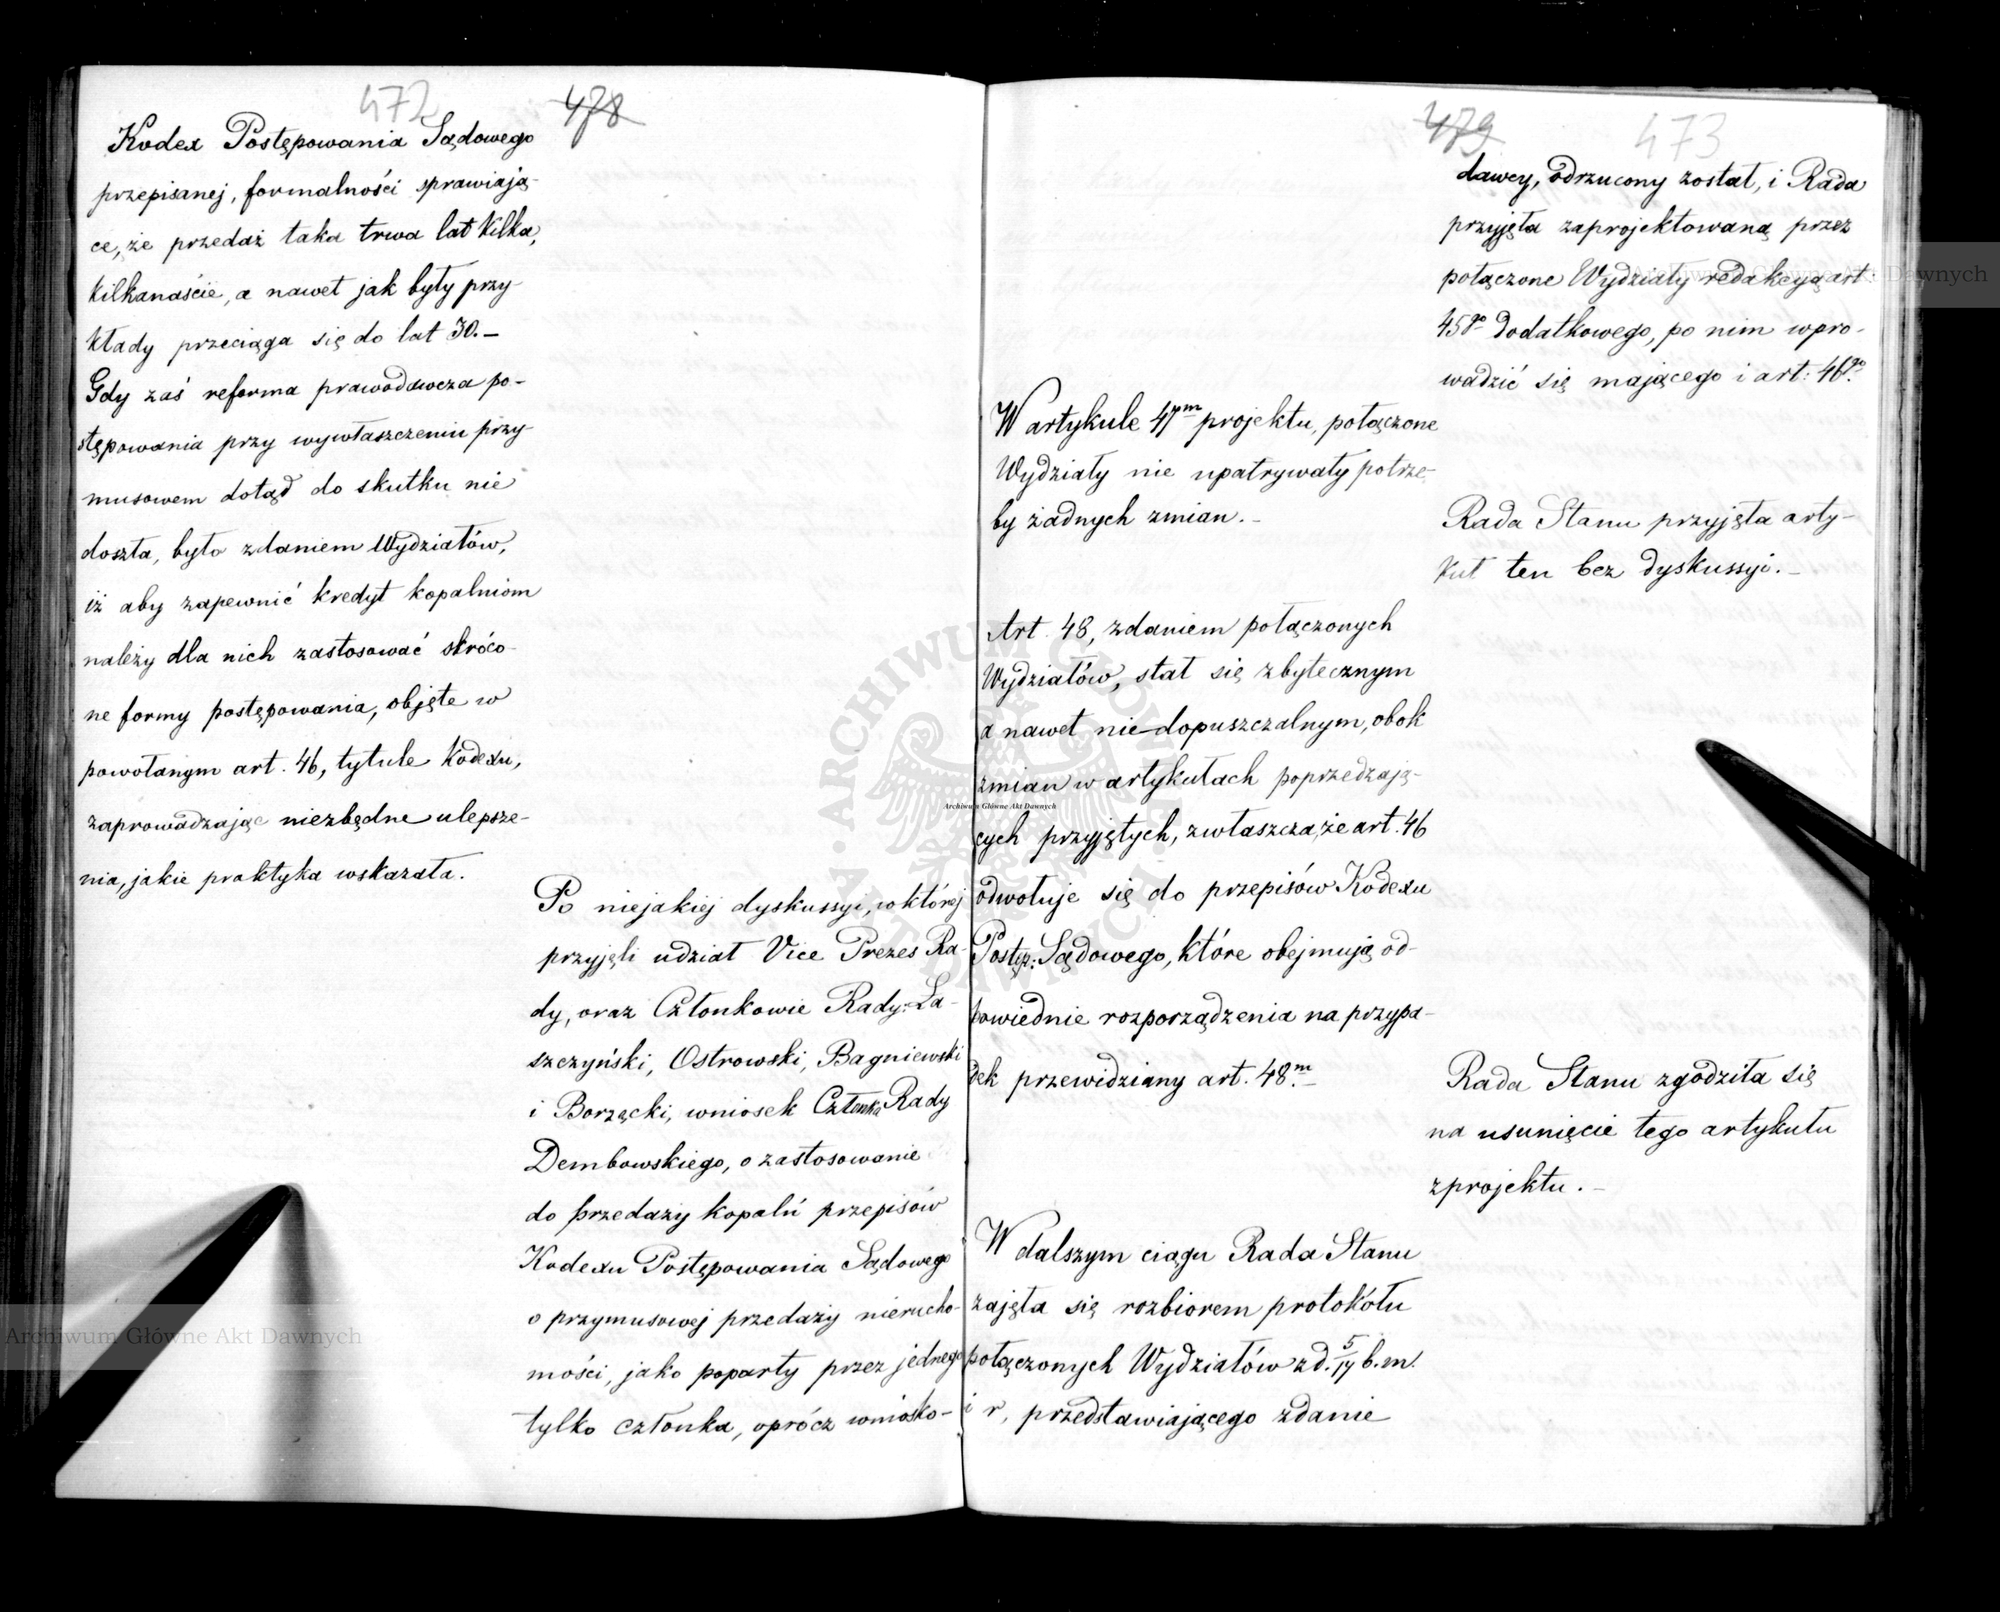 472 478
Kodex Postępowania Sądowego
przepisanej, formalności sprawiają-
ce, że przedaż taka trwa lat kilka,
kilkanaście, a nawet jak były przy-
kłady przeciąga się do lat 30.-
Gdy zaś reforma prawodawcza po-
stępowania przy wywłaszczeniu przy-
musowem dotąd do skutku nie
doszła, było zdaniem Wydziałów,
iż aby zapewnić kredyt kopalniom
należy dla nich zastosować skróco-
ne formy postępowania, objęte w
powołanym art. 46, tytule Kodexu,
zaprowadzając niezbędne ulepsze-
nia, jakie praktyka wskazała.
Po niejakiej dyskussyi, w której
przyjęli udział Vice Prezes Ra-
dy, oraz Członkowie Rady: Ła-
szczyński, Ostrowski, Bagniewski
i Borzęcki, wniosek Członka Rady
Dembowskiego, o zastosowanie
do przedaży kopalń przepisów
Kodexu Postępowania Sądowego
o przymusowej przedaży nierucho-
mości, jako poparty przez jednego
tylko członka, oprócz wniosko-
479 473
dawcy, odrzucony został, i Rada
przyjęła zaprojektowaną przez
połączone Wydziały redakcyą art.
45go dodatkowego, po nim wpro-
wadzić się mającego i art: 46go.
W artykule 47m projektu, połączone
Wydziały nie upatrywały potrze-
by żadnych zmian.-
Rada Stanu przyjęła arty-
kuł ten bez dyskussyi.-
Art. 48, zdaniem połączonych
Wydziałów, stał się zbytecznym
a nawet niedopuszczalnym, obok
zmian w artykułach poprzedzają-
cych przyjętych, zwłaszcza, że art. 46
odwołuje się do przepisów Kodexu
Postęp: Sądowego, które obejmują od-
powiednie rozporządzenia na przypa-
dek przewidziany art. 48m.-
Rada Stanu zgodziła się
na usunięcie tego artykułu
z projektu.-
W dalszym ciągu Rada Stanu
zajęła się rozbiorem protokółu
połączonych Wydziałów z d. 5/17 b. m.
i r, przedstawiającego zdanie
Archiwum Główne Akt Dawnych
Archiwum Główne Akt Dawnych
Archiwum Główne Akt Dawnych